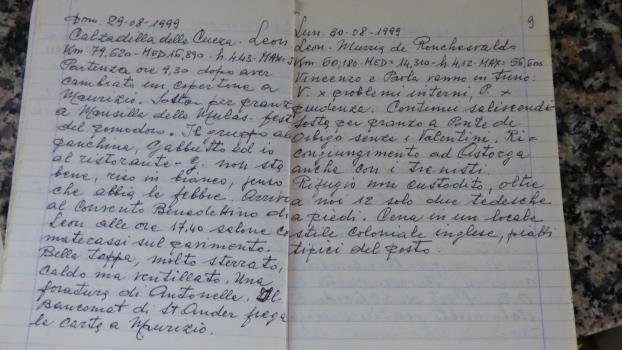 Dom. 29-08-1999
Calzadilla della Cueza. Leon
Km 79,620 - MED. 15,890 - h. 4.43 - MAX:
Partenza ore 9,30 dopo aver
cambiato un copertone a
Maurizio. Sosta per pranzo
a Mansilla delle Mulas. fest
del pomodoro. Il gruppo al
panchine, Gabbutto ed io
al ristorante - g. non sta
bene, riso in bianco, penso
che abbia la febbre. Arrivo
al Convento Benedettino di
Leon alle ore 17.40 salone co
materassi sul pavimento.
Bella tappa, molto sterrato,
caldo ma ventillato. Una
foratura di Antonella. Il
Bancomat di St Ander frega
la carta a Maurizio.
9
Lun. 30-08-1999
Leon. Murria de Ronchesvaldo
Km 60,180 - MED. 14,310 - h. 4,12 - MAX:
Vincenzo e Paola vanno in treno:
V. x problemi interni, P. x
prudenza. Continui saliscendi
sosta per pranzo a Ponte de
Orbigo senza i Valentini. Ri=
congiungimento ad Astorga
anche con i trenisti.
Rifugio non custodito, oltre
a noi 12 solo due tedesche
a piedi. Cena in un locale
stile coloniale inglese, piatti
tipici del posto.